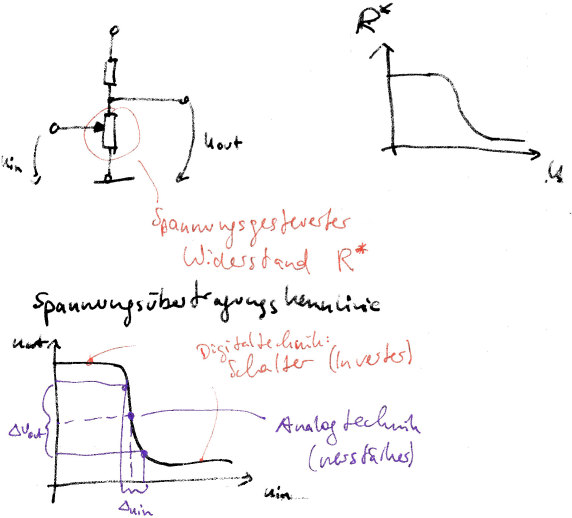 R*
Uout
Uin
U
Spannungsgesteuerter
Widerstand R*
Spannungsübertragungskennlinie
Uout
Digitaltechnik:
Schalter (Inverter)
Analogtechnik
(Verstärker)
ΔUout
ΔUin
Uin